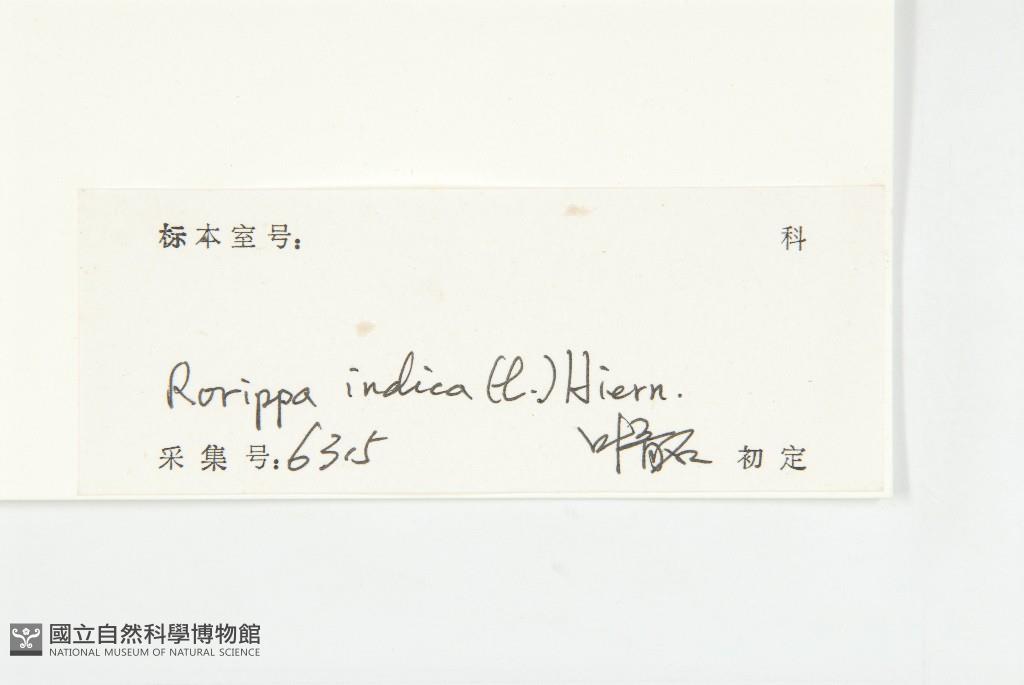 标本室号: 科
Rorippa indica (L.) Hiern.
采集号: 6315 叶 初定
國立自然科學博物館
NATIONAL MUSEUM OF NATURAL SCIENCE